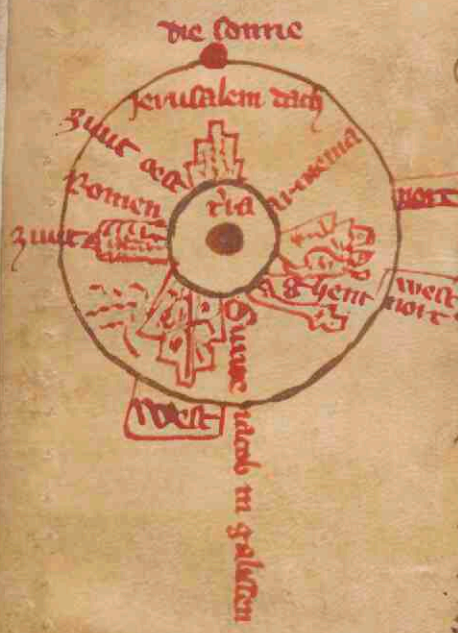 die sonne
Jerusalem dach
zuut oest
Romen
t'ria
Armenia
zuut
nort
Ghent
west
nort
west
Sunte iacob in galissien